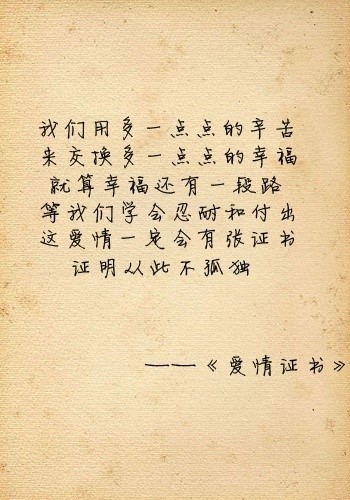 我们用多一点点的辛苦
来交换多一点点的幸福
就算幸福还有一段路
等我们学会忍耐和付出
这爱情一定会有张证书
证明从此不孤独
——《爱情证书》